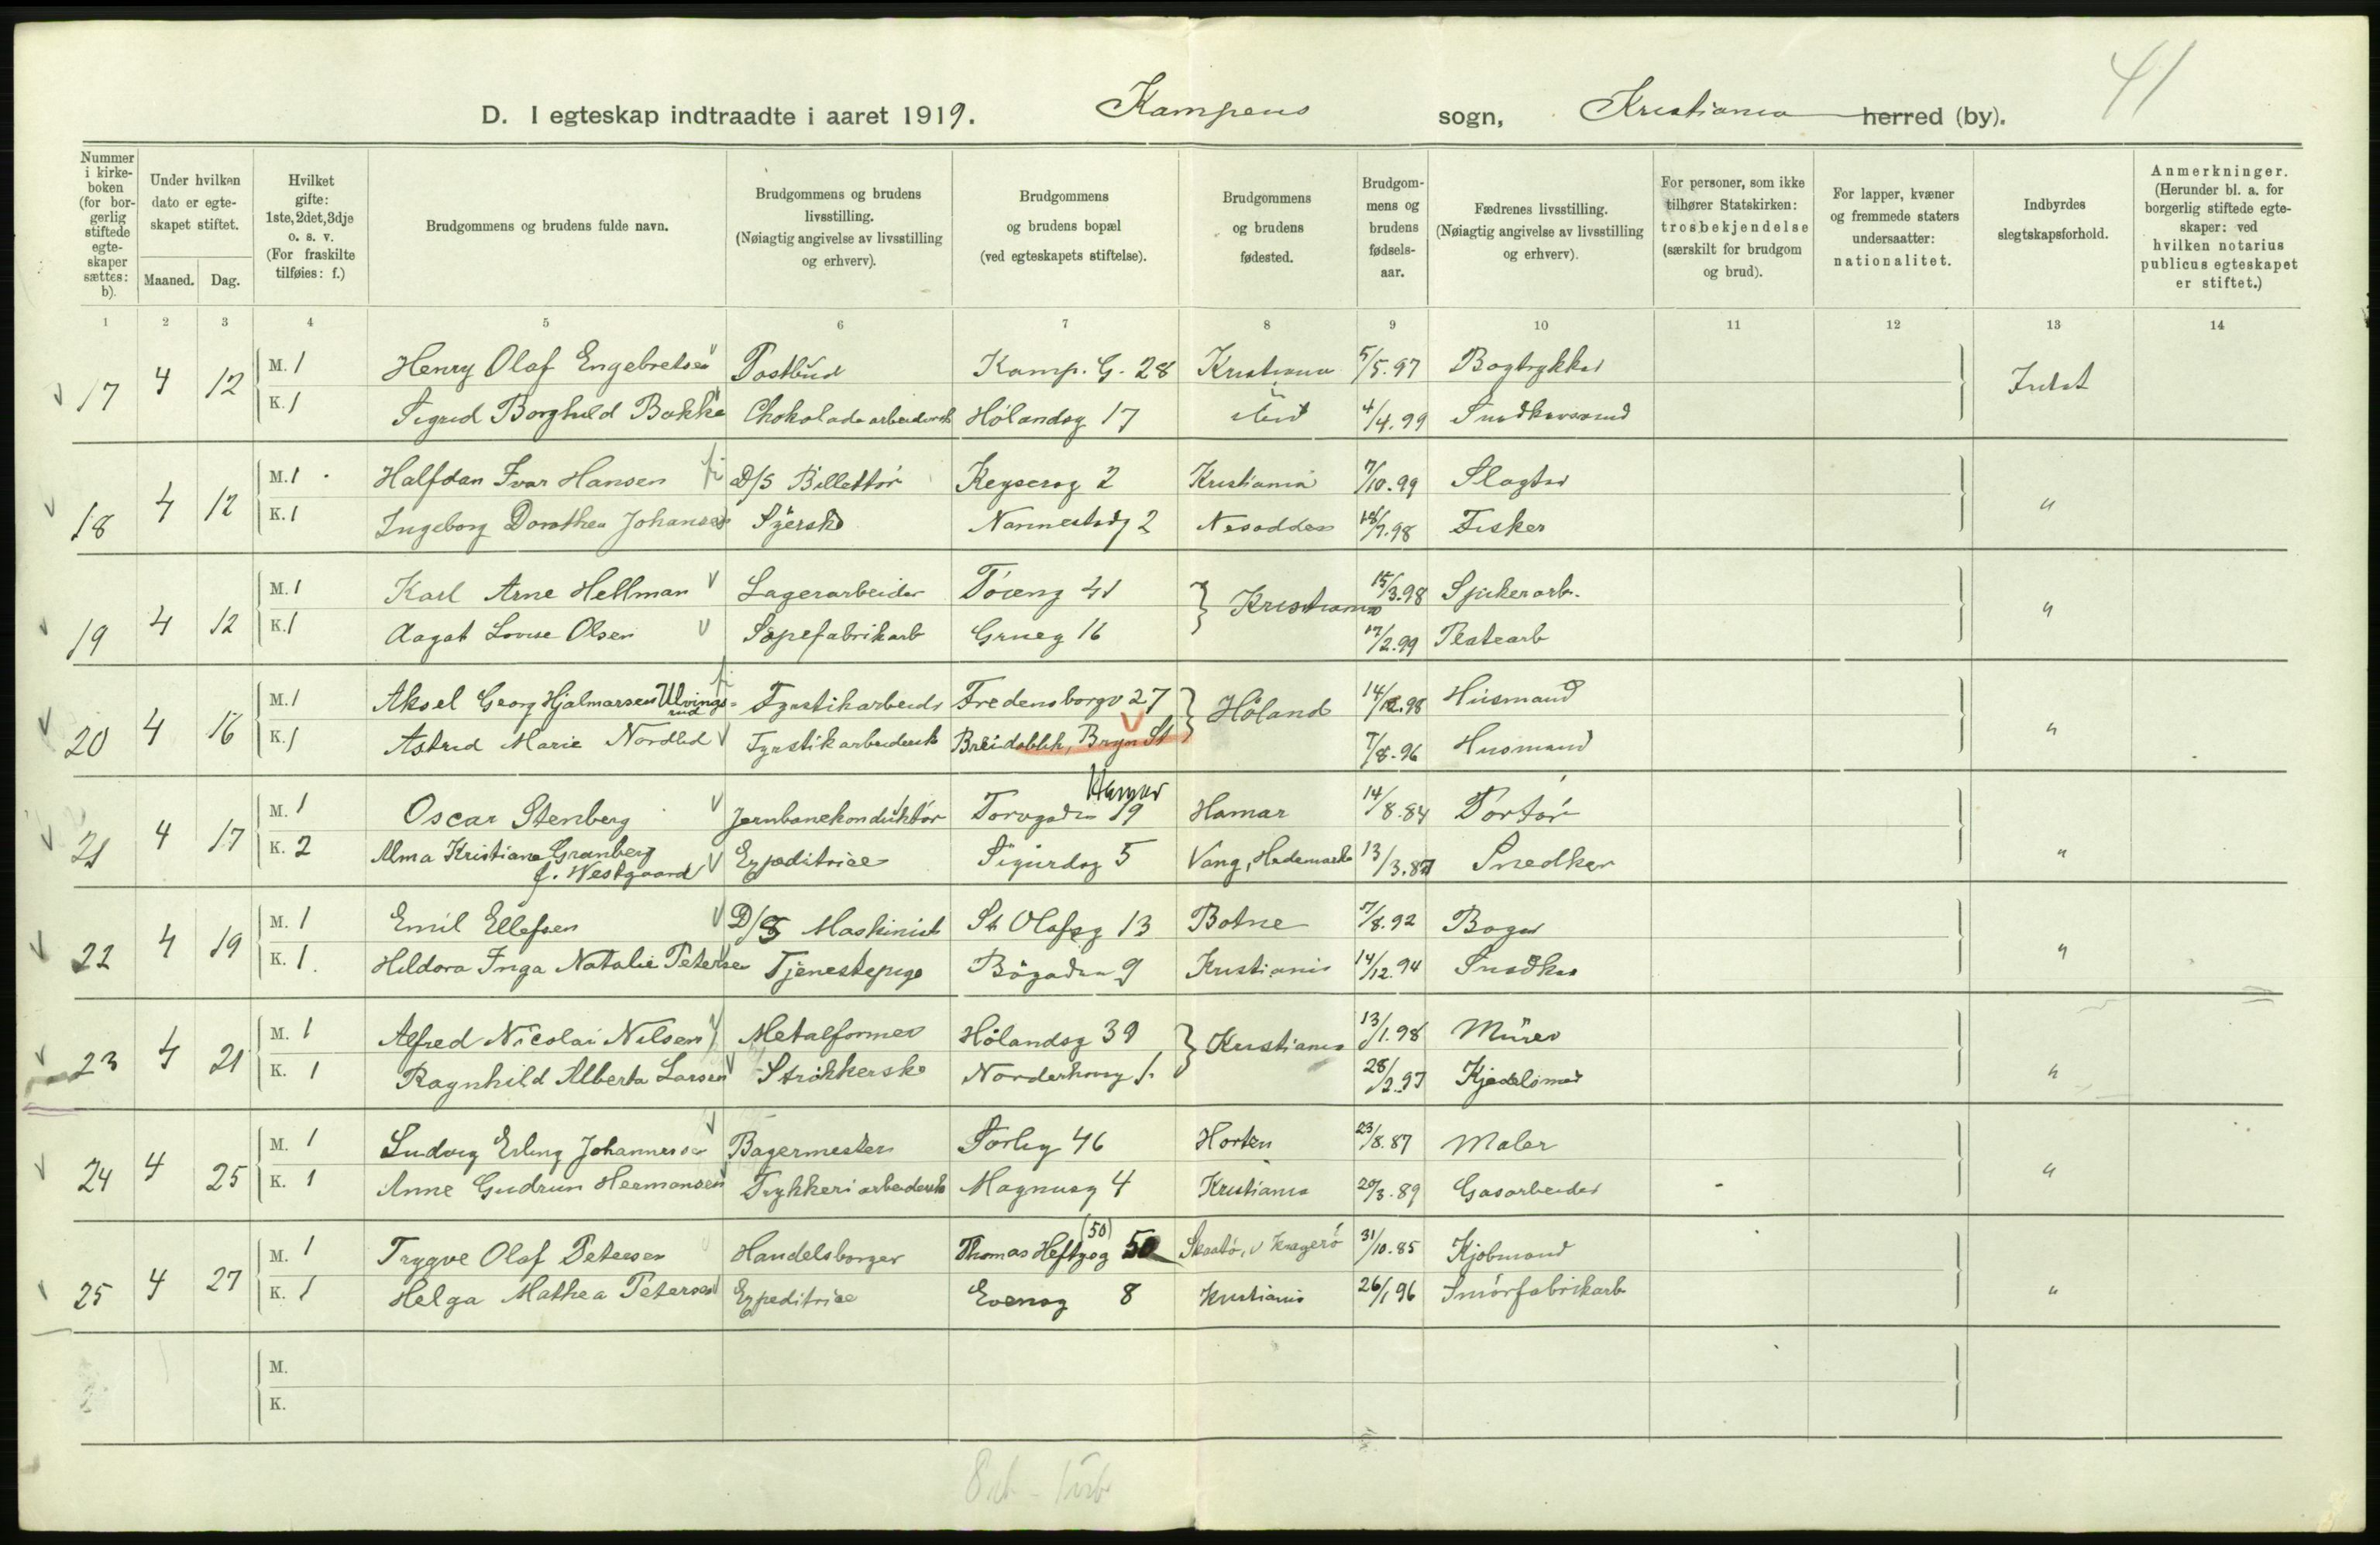 41
D. I egteskap indtraadte i aaret 1919. Kampens sogn, Kristiania herred (by).
Nummer i kirkeboken (for borgerlig stiftede egteskaper sættes: b).
Under hvilken dato er egteskapet stiftet.
Maaned. Dag.
Hvilket gifte: 1ste, 2det, 3dje o. s. v. (For fraskilte tilføies: f.)
Brudgommens og brudens fulde navn.
Brudgommens og brudens livsstilling. (Nøiagtig angivelse av livsstilling og erhverv).
Brudgommens og brudens bopæl (ved egteskapets stiftelse).
Brudgommens og brudens fødested.
Brudgommens og brudens fødselsaar.
Fædrenes livsstilling. (Nøiagtig angivelse av livsstilling og erhverv).
For personer, som ikke tilhører Statskirken: trosbekjendelse (særskilt for brudgom og brud).
For lapper, kvæner og fremmede staters undersaatter: nationalitet.
Indbyrdes slegtskapsforhold.
Anmerkninger. (Herunder bl. a. for borgerlig stiftede egteskaper: ved hvilken notarius publicus egteskapet er stiftet.)
1 2 3 4 5 6 7 8 9 10 11 12 13 14
17 4 12 M. 1 Henry Olaf Engebretsen Postbud Kamp. G. 28 Kristiania 5/5.97 Bogtrykker Intet
K. 1 Sigrid Borghild Bakke Chokoladearbeiderske Hölandsg 17 4/4.99 Snedkersvend
18 4 12 M. 1 Halfdan Ivar Hansen D/S Billettör Keysersg 2 Kristiania 7/10.99 Slagter "
K. 1 Ingeborg Dorothea Johansen Syerske Nannestadg 2 Nesodden 18/7.98 Fisker
19 4 12 M. 1 Karl Arne Hellman Lagerarbeider Töieng 41 } Kristiania 15/3.98 Spikerarb. "
K. 1 Aagot Lovise Olsen Sæpefabrikarb Grueg 16 17/2.99 Platearb
20 4 16 M. 1 Aksel Georg Hjalmarsen Ulvingsrud Fyrstikarbeider Fredensborgv 27 } Höland 14/12.98 Husmand "
K. 1 Astrid Marie Nordlid Fyrstikarbeiderske Breidablik, Bryn St 7/8.96 Husmand
21 4 17 M. 1 Oscar Stenberg Jernbanekonduktör Torvgaden 19 Hamar Hamar 14/8.84 Portör "
K. 2 Alma Kristiane Granberg f. Westgaard Expeditrice Sigurdsg 5 Vang, Hedemark 13/3.87 Snedker
22 4 19 M. 1 Emil Ellefsen D/S Maskinist St Olafsg 13 Botne 7/8.92 Bager "
K. 1. Hildora Inga Natalie Petersen Tjenestepige Bögaden 9 Kristiania 14/12.94 Snedker
23 4 21 M. 1 Alfred Nicolai Nilsen Metalformer Hölandsg 39 } Kristiania 13/1.98 Murer "
K. 1 Ragnhild Alberta Larsen Strökkerske Norderhovsg 1. 28/2.97 Kjedelsmed
24 4 25 M. 1 Ludvig Erling Johannessen Bagermester Sorlig 46 Horten 23/8.87 Maler "
K. 1 Anne Gudrun Hermansen Trykkeriarbeiderske Magnusg 4 Kristiania 20/3.89 Gasarbeider
25 4 27 M. 1 Trygve Olaf Petersen Handelsborger Thomas Heftyesg 50 (50) Skaatö, v Kragerö 31/10.85 Kjöbmand "
K. 1 Helga Mathea Petersen Expeditrice Evensg 8 Kristiania 26/1 96 Smörfabrikarb
M.
K.